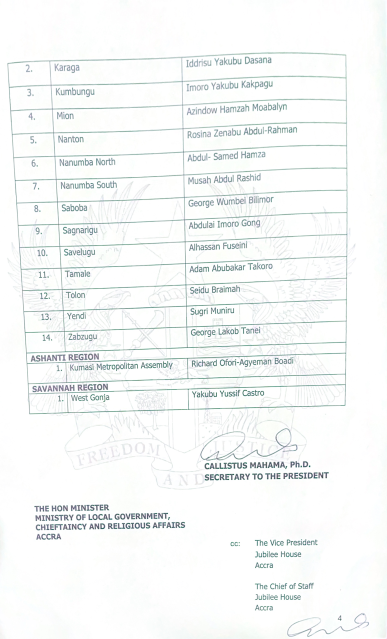 2. Karaga Iddrisu Yakubu Dasana
3. Kumbungu Imoro Yakubu Kakpagu
4. Mion Azindow Hamzah Moabalyn
5. Nanton Rosina Zenabu Abdul-Rahman
6. Nanumba North Abdul- Samed Hamza
7. Nanumba South Musah Abdul Rashid
8. Saboba George Wumbel Bilimor
9. Sagnarigu Abdulai Imoro Gong
10. Savelugu Alhassan Fuseini
11. Tamale Adam Abubakar Takoro
12. Tolon Seidu Braimah
13. Yendi Sugri Muniru
14. Zabzugu George Lakob Tanel
ASHANTI REGION
1. Kumasi Metropolitan Assembly Richard Ofori-Agyeman Boadi
SAVANNAH REGION
1. West Gonja Yakubu Yussif Castro
FREEDOM AND JUSTICE
CALLISTUS MAHAMA, Ph.D.
SECRETARY TO THE PRESIDENT
THE HON MINISTER
MINISTRY OF LOCAL GOVERNMENT,
CHIEFTAINCY AND RELIGIOUS AFFAIRS
ACCRA
cc: The Vice President
Jubilee House
Accra
The Chief of Staff
Jubilee House
Accra
4